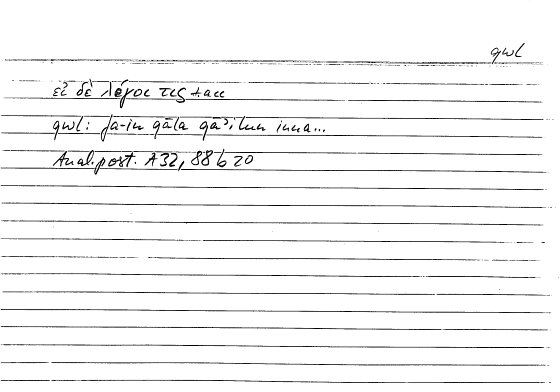 qwl
εἰ δὲ λέγοι τις + acc
qwl: fa-in qāla qāʾilun inna...
Anal. post. A32, 88 b 20